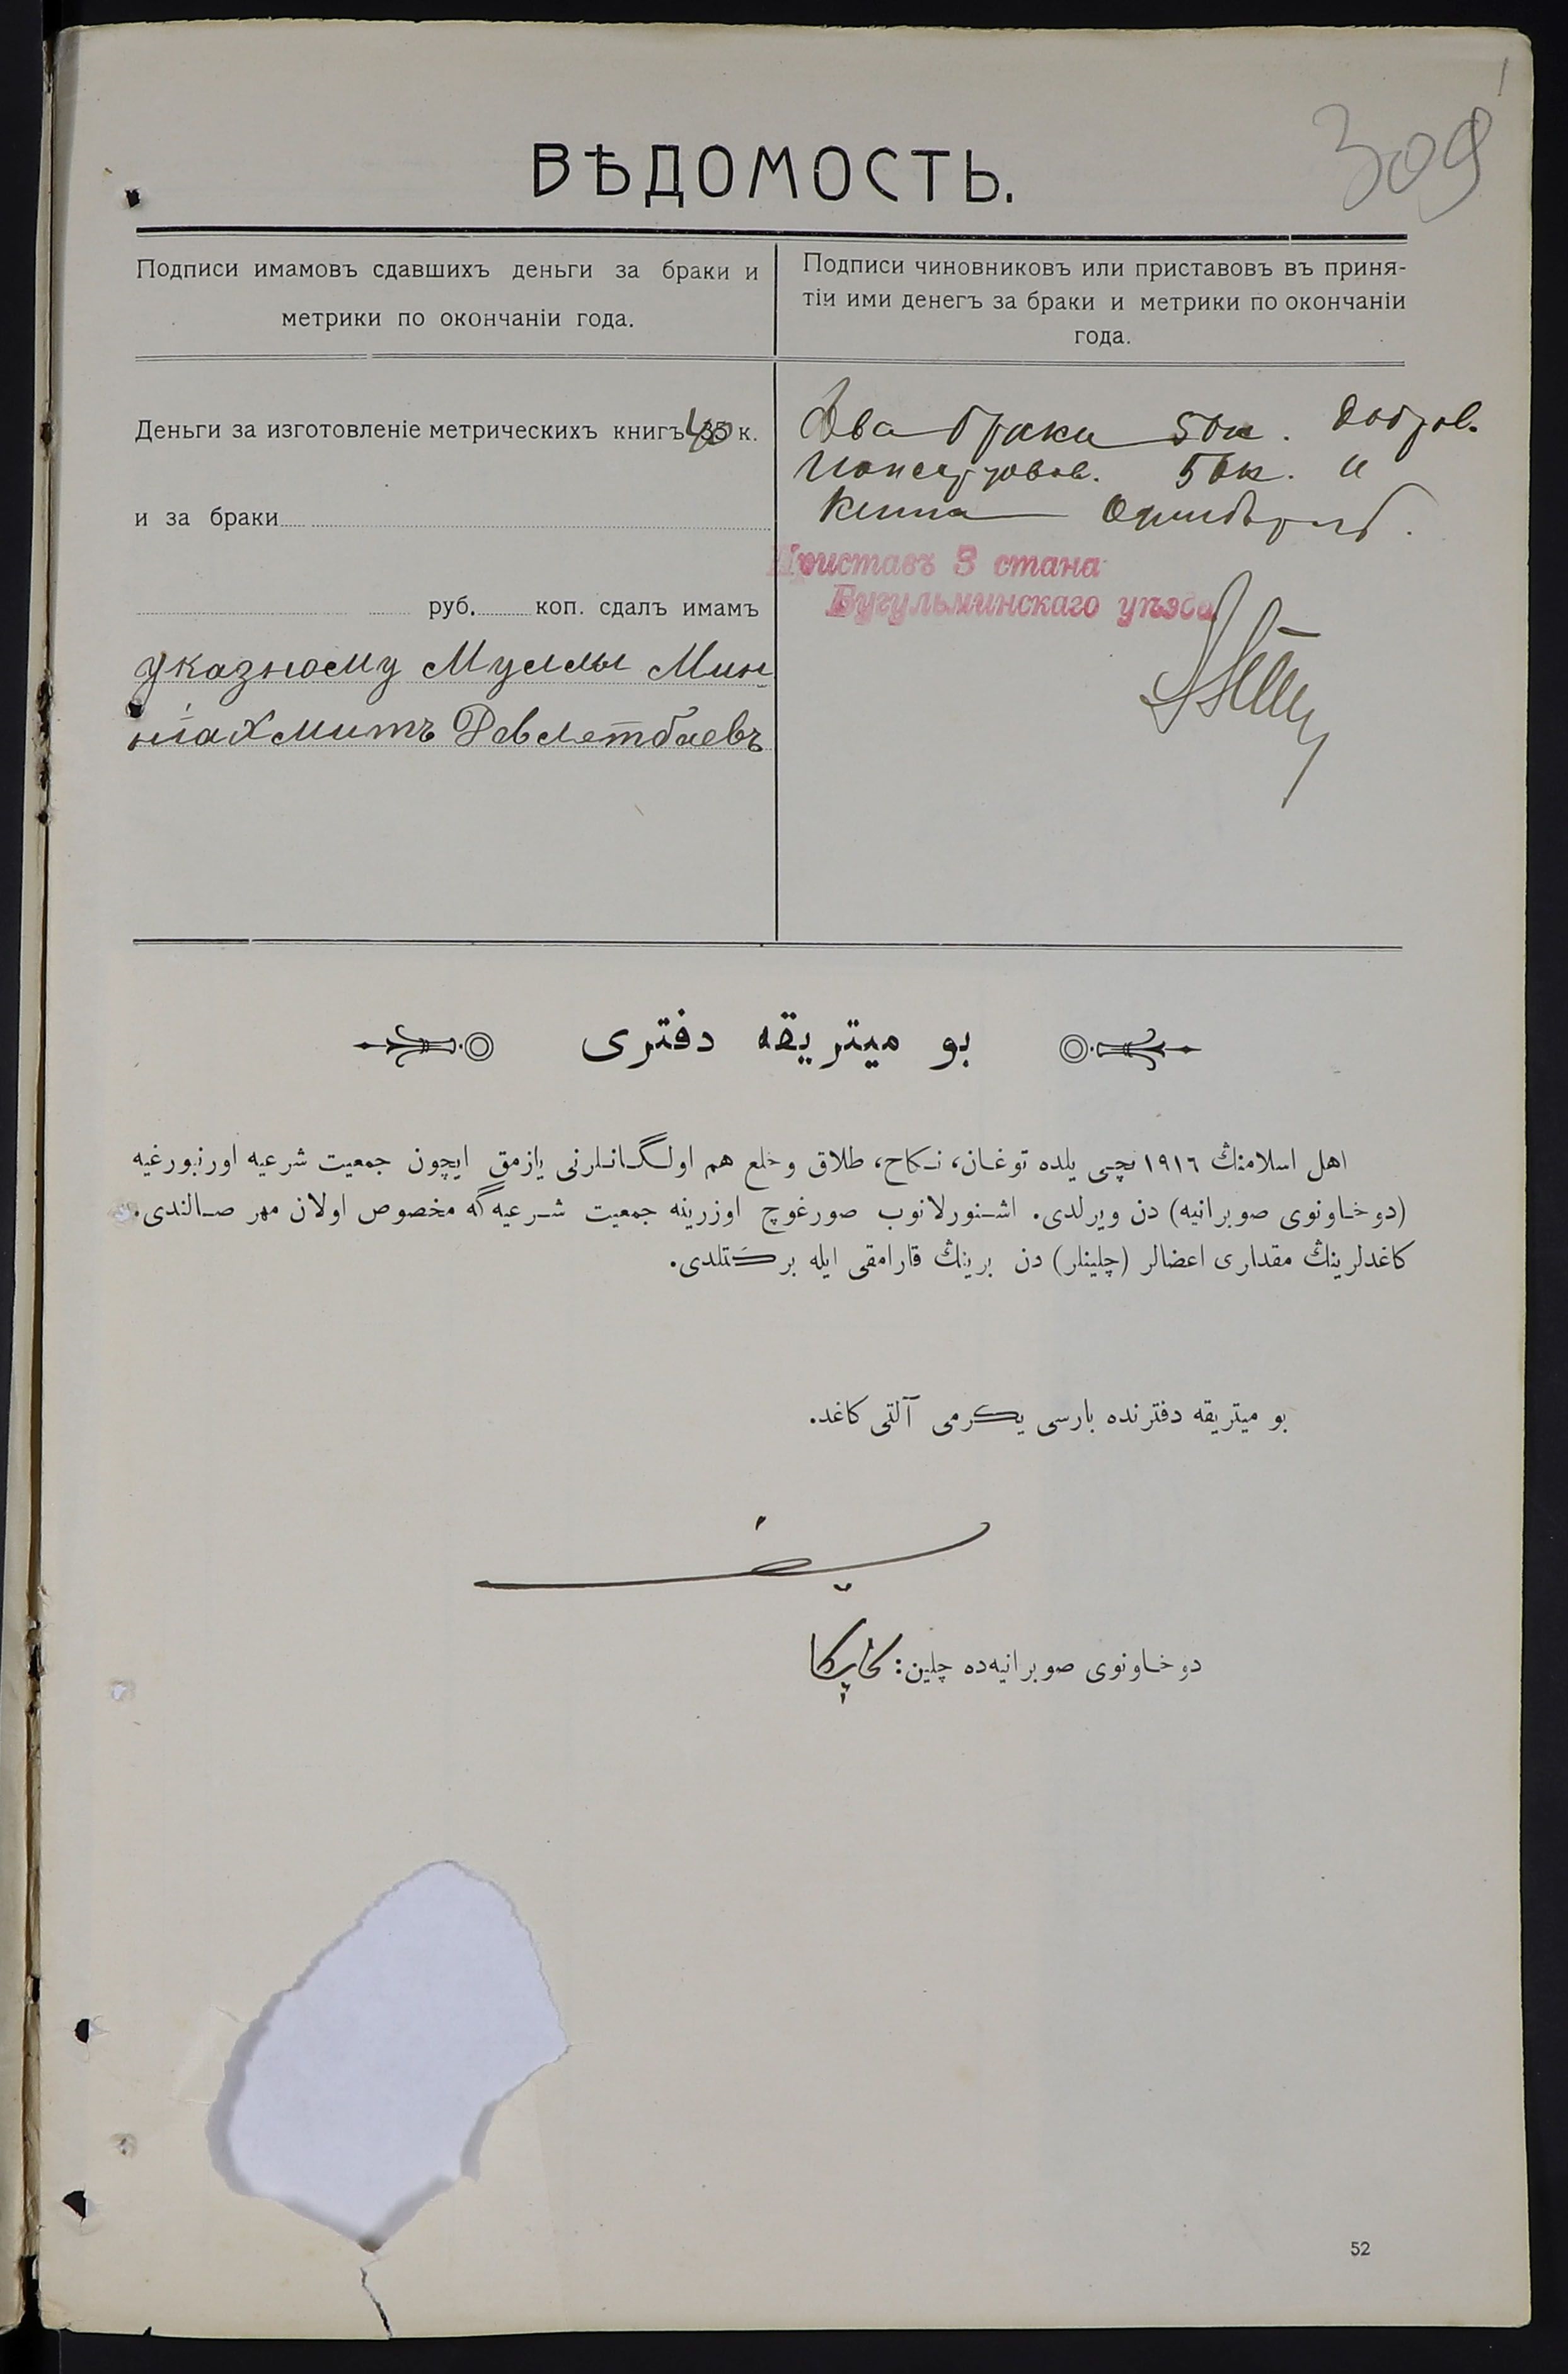 309
ВѢДОМОСТЬ.
Подписи имамовъ сдавшихъ деньги за браки и
метрики по окончаніи года.
Подписи чиновниковъ или приставовъ въ приня-
тіи ими денегъ за браки и метрики по окончаніи
года.
Деньги за изготовленіе метрическихъ книгъ 35 к.
и за браки
руб. коп. сдалъ имамъ
указному Муллы Мин
ніахмитъ Девлетбаевъ
Два брака 50к. Добров.
пожертвов. 50к. и
Приставъ 3 стана
Бугульминскаго уѣзда
بو ميتريقه دفترى
اهل اسلامنڭ ١٩١٦ نچـى يلده توغـان، نـكاح، طلاق وخلع هم اولـگـانـلرنى يازمق ايچون جمعيت شرعيه اورنبورغيه
(دوخـاونوى صوبرانيه) دن ويرلدى. اشـنورلانوب صورغوچ اوزرينه جمعيت شـرعيه‌گه مخصوص اولان مهر صـالندى.
كاغدلرينڭ مقدارى اعضالر (چلينلر) دن برينڭ قارامقى ايله بركـتلدى.
بو ميتريقه دفترنده بارسى يكرمى آلتى كاغد.
دوخـاونوى صوبرانيه‌ده چلين:
52